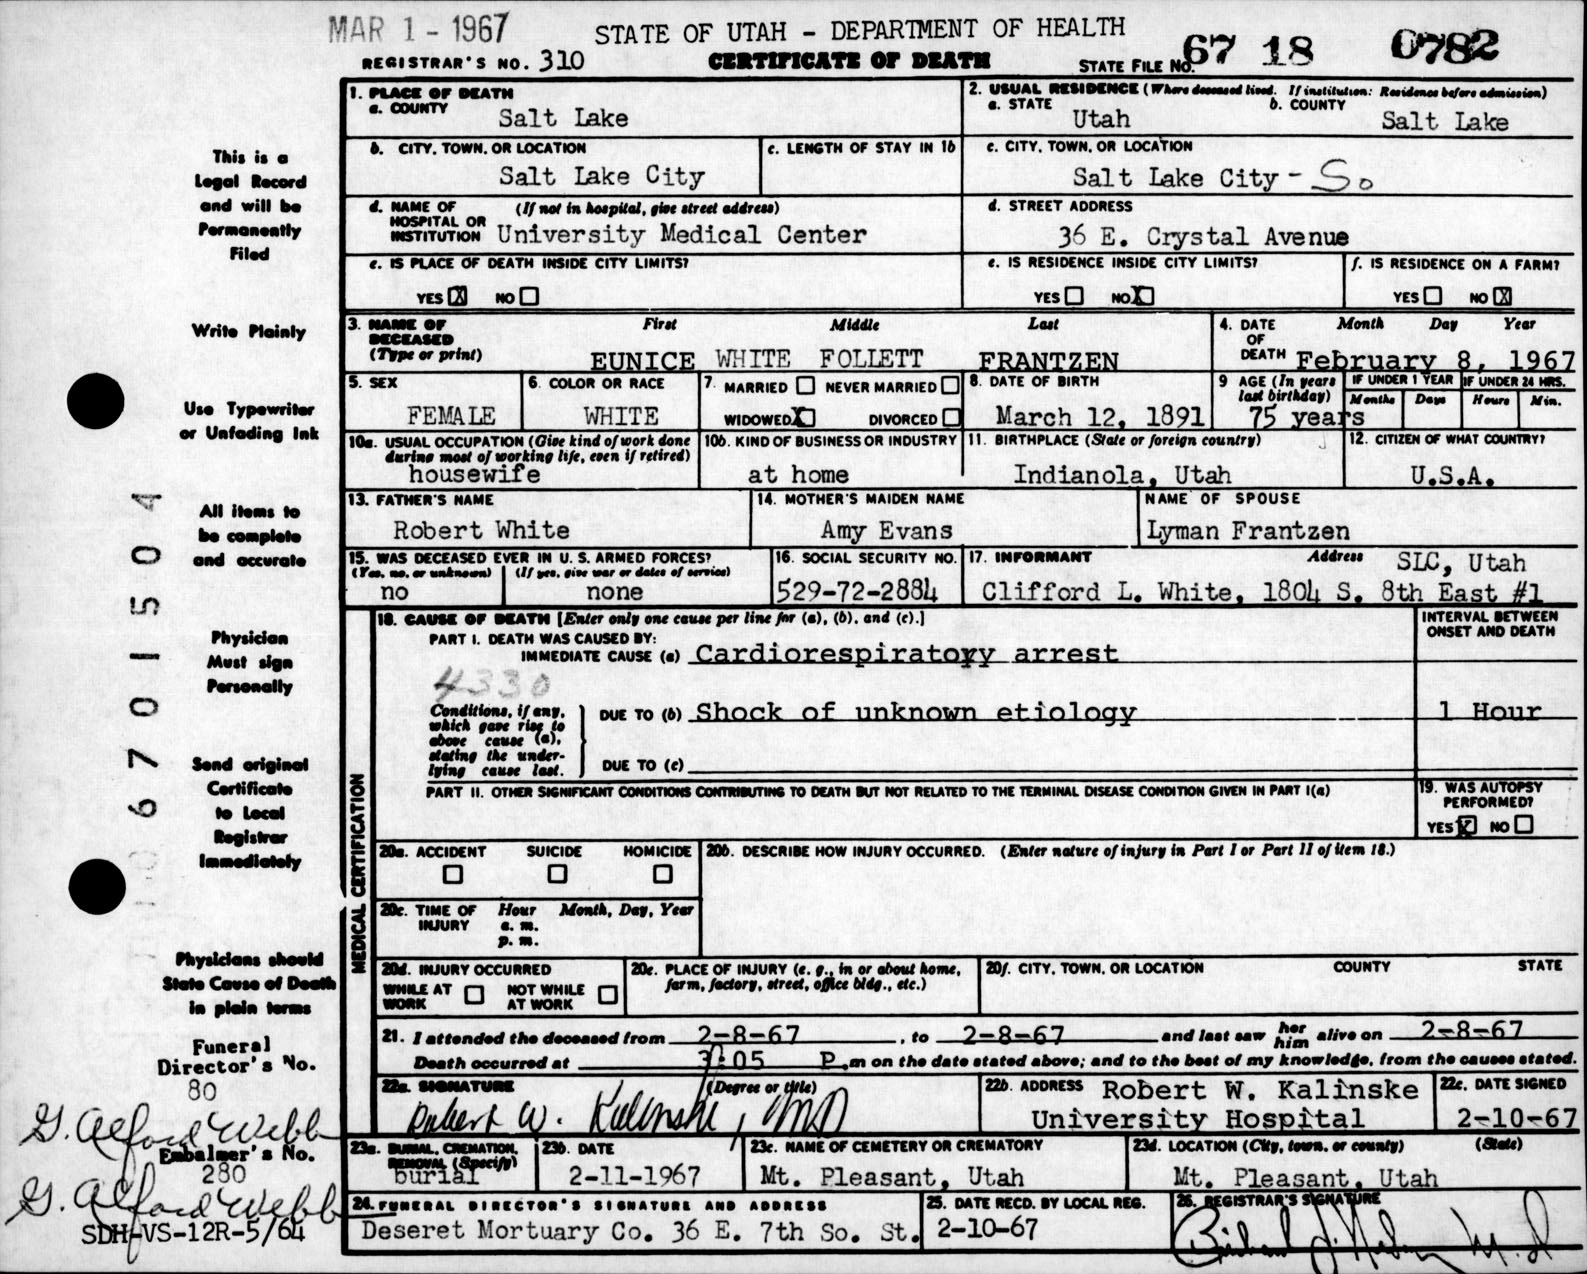 MAR 1 - 1967
STATE OF UTAH - DEPARTMENT OF HEALTH
REGISTRAR'S NO. 310
CERTIFICATE OF DEATH
STATE FILE NO. 67 18 0782
1. PLACE OF DEATH
a. COUNTY Salt Lake
2. USUAL RESIDENCE (Where deceased lived. If institution: Residence before admission)
a. STATE Utah b. COUNTY Salt Lake
b. CITY, TOWN, OR LOCATION Salt Lake City
c. LENGTH OF STAY IN 1b
c. CITY, TOWN, OR LOCATION Salt Lake City - So
d. NAME OF HOSPITAL OR INSTITUTION (If not in hospital, give street address) University Medical Center
d. STREET ADDRESS 36 E. Crystal Avenue
e. IS PLACE OF DEATH INSIDE CITY LIMITS?
YES X NO
e. IS RESIDENCE INSIDE CITY LIMITS?
YES NO X
f. IS RESIDENCE ON A FARM?
YES NO X
3. NAME OF DECEASED (Type or print) First Middle Last
EUNICE WHITE FOLLETT FRANTZEN
4. DATE OF DEATH Month Day Year
February 8, 1967
5. SEX FEMALE
6. COLOR OR RACE WHITE
7. MARRIED NEVER MARRIED
WIDOWED X DIVORCED
8. DATE OF BIRTH March 12, 1891
9 AGE (In years last birthday) 75 years
IF UNDER 1 YEAR Months Days
IF UNDER 24 HRS. Hours Min.
10a. USUAL OCCUPATION (Give kind of work done during most of working life, even if retired)
housewife
10b. KIND OF BUSINESS OR INDUSTRY
at home
11. BIRTHPLACE (State or foreign country)
Indianola, Utah
12. CITIZEN OF WHAT COUNTRY?
U.S.A.
13. FATHER'S NAME Robert White
14. MOTHER'S MAIDEN NAME Amy Evans
NAME OF SPOUSE Lyman Frantzen
15. WAS DECEASED EVER IN U. S. ARMED FORCES?
(Yes, no, or unknown) no
(If yes, give war or dates of service) none
16. SOCIAL SECURITY NO. 529-72-2884
17. INFORMANT Address SLC, Utah
Clifford L. White, 1804 S. 8th East #1
18. CAUSE OF DEATH [Enter only one cause per line for (a), (b), and (c).]
INTERVAL BETWEEN ONSET AND DEATH
PART I. DEATH WAS CAUSED BY:
IMMEDIATE CAUSE (a) Cardiorespiratory arrest
4330
Conditions, if any, which gave rise to above cause (a), stating the underlying cause last.
DUE TO (b) Shock of unknown etiology 1 Hour
DUE TO (c)
PART II. OTHER SIGNIFICANT CONDITIONS CONTRIBUTING TO DEATH BUT NOT RELATED TO THE TERMINAL DISEASE CONDITION GIVEN IN PART I(a)
19. WAS AUTOPSY PERFORMED?
YES X NO
MEDICAL CERTIFICATION
20a. ACCIDENT SUICIDE HOMICIDE
20b. DESCRIBE HOW INJURY OCCURRED. (Enter nature of injury in Part I or Part II of item 18.)
20c. TIME OF INJURY Hour Month, Day, Year
a. m.
p. m.
20d. INJURY OCCURRED
WHILE AT WORK NOT WHILE AT WORK
20e. PLACE OF INJURY (e. g., in or about home, farm, factory, street, office bldg., etc.)
20f. CITY, TOWN, OR LOCATION COUNTY STATE
21. I attended the deceased from 2-8-67, to 2-8-67 and last saw her him alive on 2-8-67
Death occurred at 3:05 P.m on the date stated above; and to the best of my knowledge, from the causes stated.
22a. SIGNATURE (Degree or title)
Robert W. Kalinske, MD
22b. ADDRESS Robert W. Kalinske
University Hospital
22c. DATE SIGNED
2-10-67
23a. BURIAL, CREMATION, REMOVAL (Specify)
burial
23b. DATE
2-11-1967
23c. NAME OF CEMETERY OR CREMATORY
Mt. Pleasant, Utah
23d. LOCATION (City, town, or county) (State)
Mt. Pleasant, Utah
24. FUNERAL DIRECTOR'S SIGNATURE AND ADDRESS
Deseret Mortuary Co. 36 E. 7th So. St.
25. DATE RECD. BY LOCAL REG.
2-10-67
26. REGISTRAR'S SIGNATURE
This is a
Legal Record
and will be
Permanently
Filed
Write Plainly
Use Typewriter
or Unfading Ink
All items to
be complete
and accurate
Physician
Must sign
Personally
Send original
Certificate
to Local
Registrar
Immediately
Physicians should
State Cause of Death
in plain terms
Funeral
Director's No.
80
G. Alford Webb
Embalmer's No.
280
G. Alford Webb
SDH-VS-12R-5/64
6701504